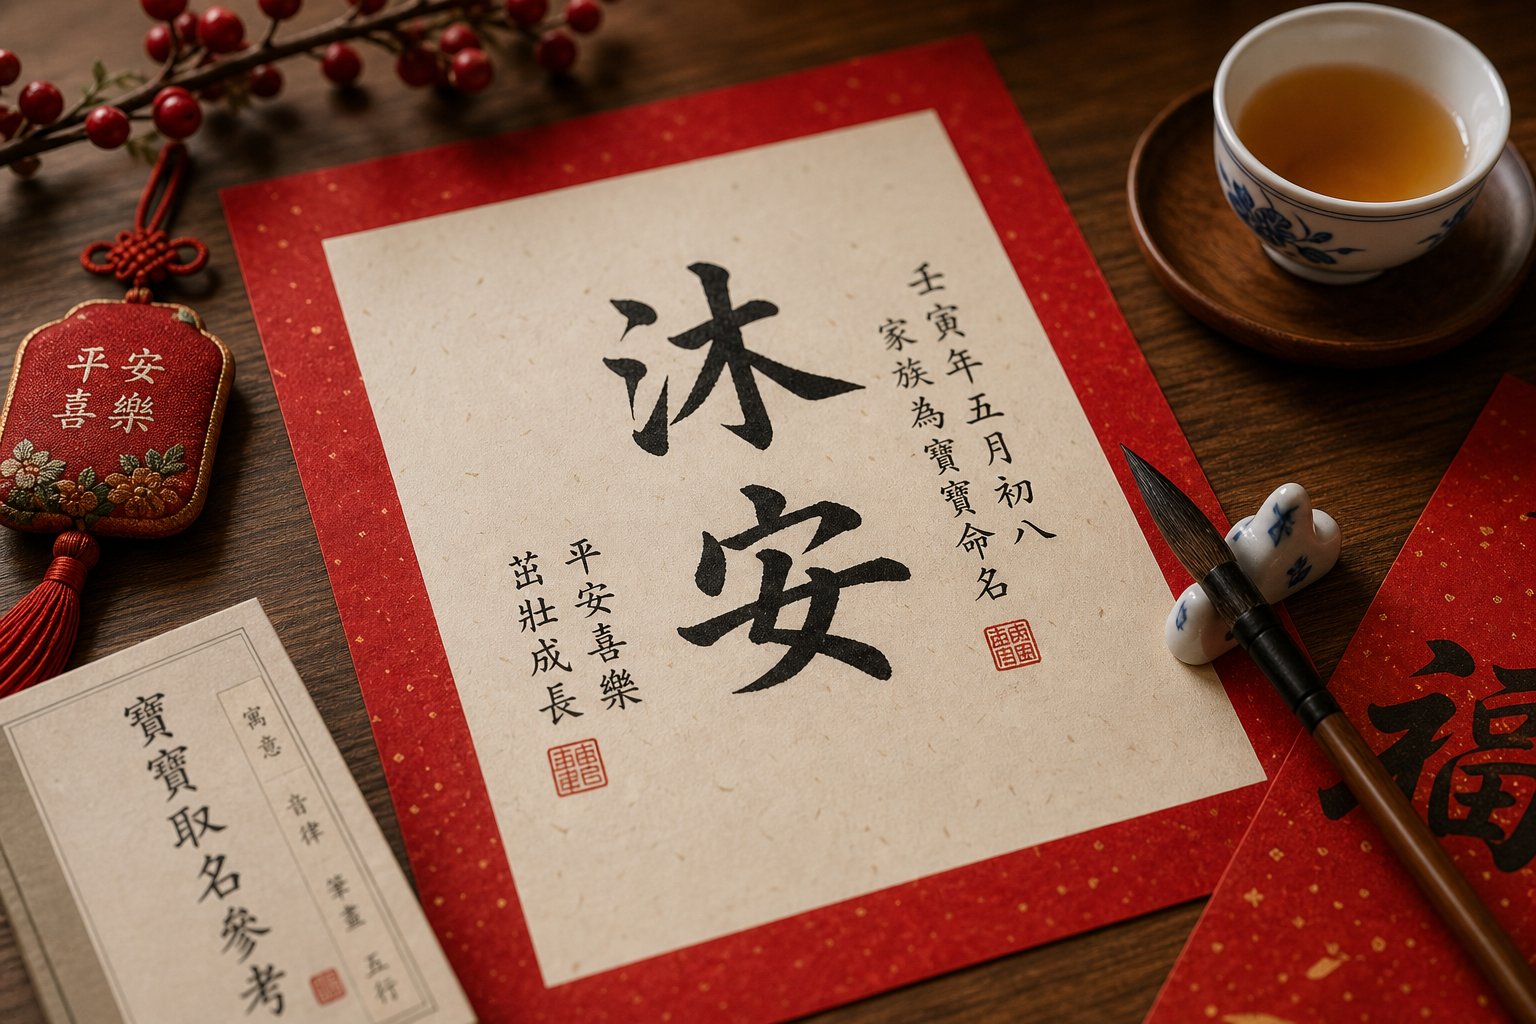 沐安
壬寅年五月初八
家族為寶寶命名
平安喜樂
茁壯成長
平安
喜樂
寶寶取名參考
寓意 音律 筆畫 五行
福